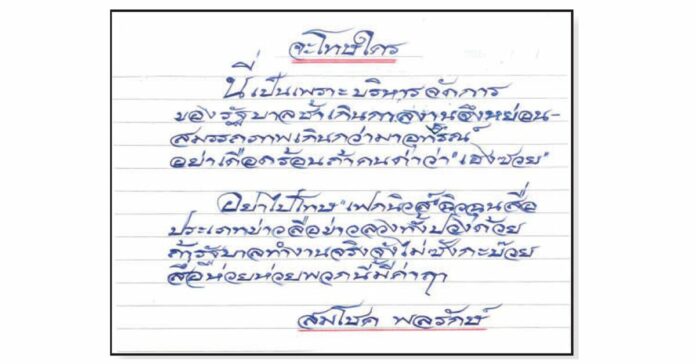 จะโทษใคร
นี่เป็นเพราะบริหารจัดการ
ของรัฐบาลช้าเกินการงานจึงหย่อน-
สมรรถภาพเกินกว่ามาอุทธรณ์
อย่าเดือดร้อนถ้าคนด่าว่า"เฮงซวย"
อย่าไปโทษ"เฟคนิวส์"ฉิวฉุนสื่อ
ประเภทข่าวลือข่าวลวงทั้งปวงด้วย
ถ้ารัฐบาลทำงานจริงจังไม่ซังกะบ๊วย
สื่อห่วยห่วยพวกนี้มีค่าฤๅ
สมโชค พลรักษ์